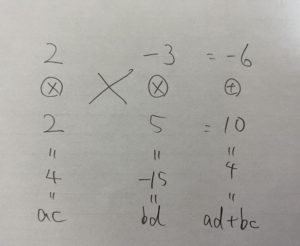 2 -3 = -6
⊗ × ⊗ ⊕
2 5 = 10
= = =
4 -15 4
= = =
ac bd ad+bc